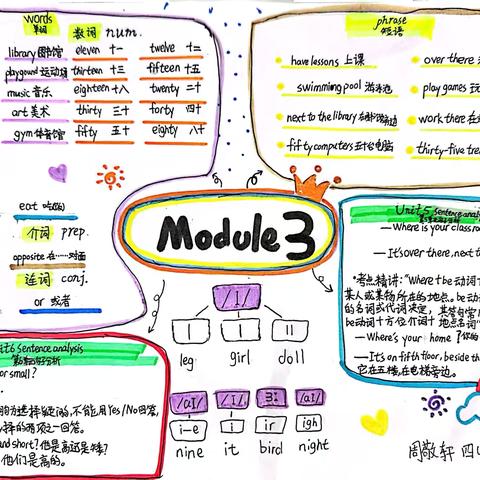 words
单词
数词 num.
library 图书馆 eleven 十一 twelve 十二
playgound 运动场 thirteen 十三 fifteen 十五
music 音乐 eighteen 十八 twenty 二十
art 美术 thirty 三十 forty 四十
gym 体育馆 fifty 五十 eighty 八十
eat 吃(的)
介词 prep.
opposite 在……对面
连词 conj.
or 或者
phrase
短语
have lessons 上课
over there
swimming pool 游泳池
play games 玩
next to the library 在图书馆旁边
work there 在
fifty computers 五十台电脑
thirty-five tree
Module 3
/l/
l l ll
leg girl doll
/aɪ/ /ɪ/ /ɜː/ /aɪ/
i-e i ir igh
nine it bird night
Unit 5 sentence analy
—Where is your classroo
—It's over there, next t
•考点精讲:"Where+be动词+
某人或某物所在的地点。be动
的名词或代词决定,其答句常
be动词+方位介词+地点名词"
—Where's your home?
—It's on fifth floor, beside the
它在五楼,在电梯旁边。
Unit 6 sentence analysis
or small?
为选择疑问句,不能用Yes/No回答,
择的两项之一回答。
and short? 他是高还是矮?
他们是高的。
周敬轩 四